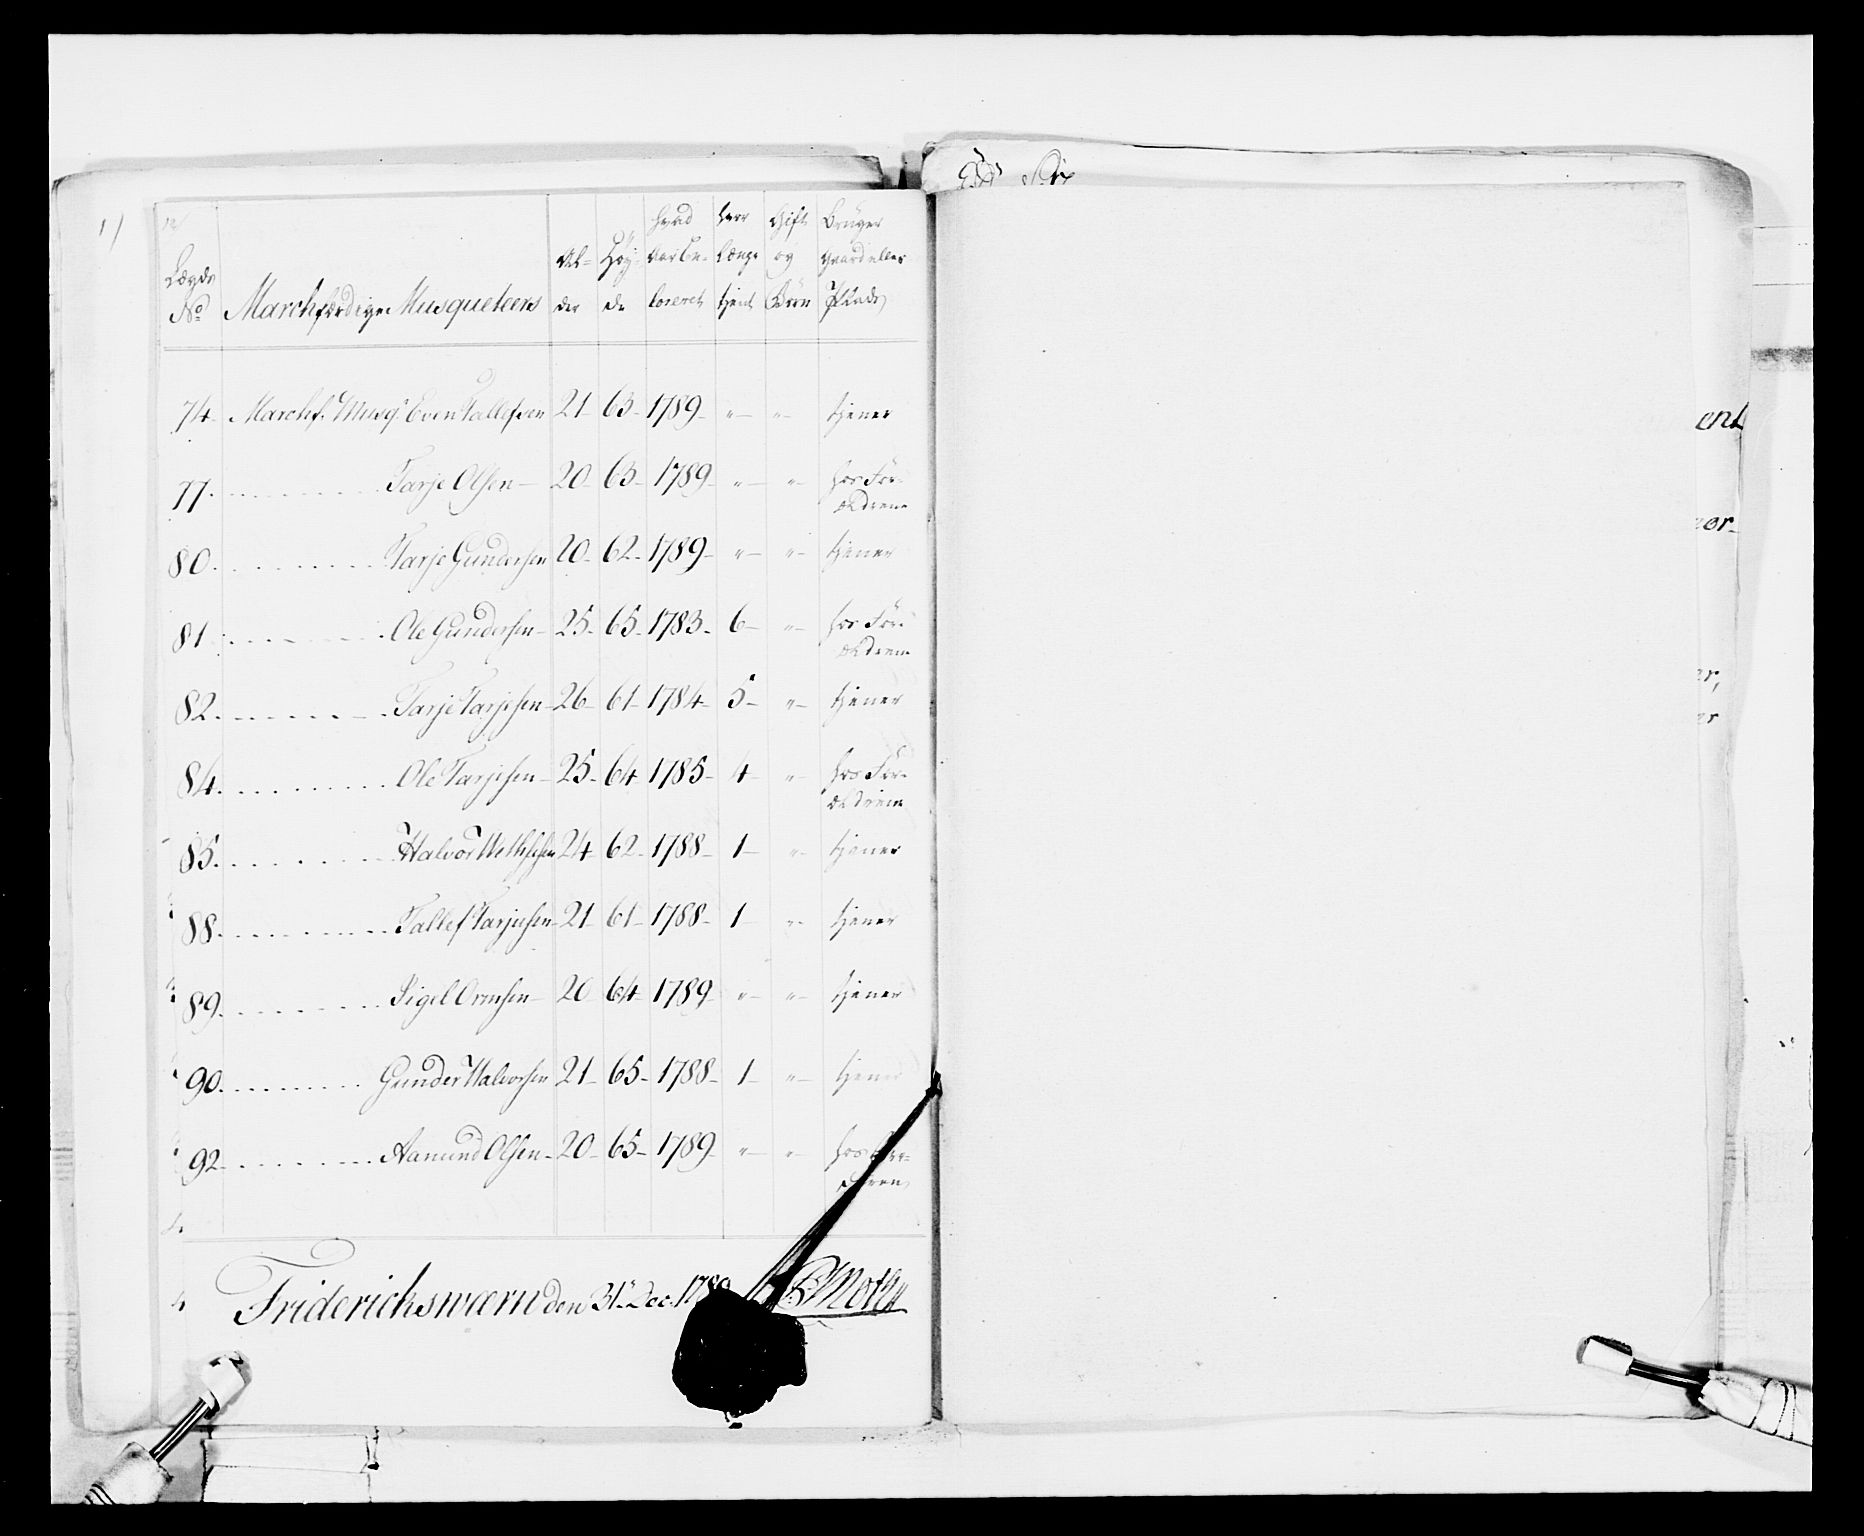 Lægds No Marchfærdige Musqueteers Al- der Høy- de hvad Aar En- roleret hvor længe tjent Gift og Börn Brüger Gaard eller Plads
74. Marchf. Musq. Even Tallefsen 21 63 1789 " " tjener
77. Tarje Olsen 20 63 1789 " " hos For-
ældrene
80. Tarje Gundersen 20 62 1789 " " tjener
81. Ole Gundersen 25 65 1783 6 " hos For-
ældrene
82. Tarje Tarjesen 26 61 1784 5 " tjener
84. Ole Tarjesen 25 64 1785 4 " hos For-
ældrene
85. Halvor 24 62 1788 1 " tjener
88. Tallef Tarjesen 21 61 1788 1 " tjener
89. Sigel Ormsen 20 64 1789 " " tjener
90. Gunder Halvorsen 21 65 1788 1 " tjener
92. Aamund Olsen 20 65 1789 " " hos For-
ældren
Friderichswærn den 31te Dec. 1789 Moth
ent
or
er,
er